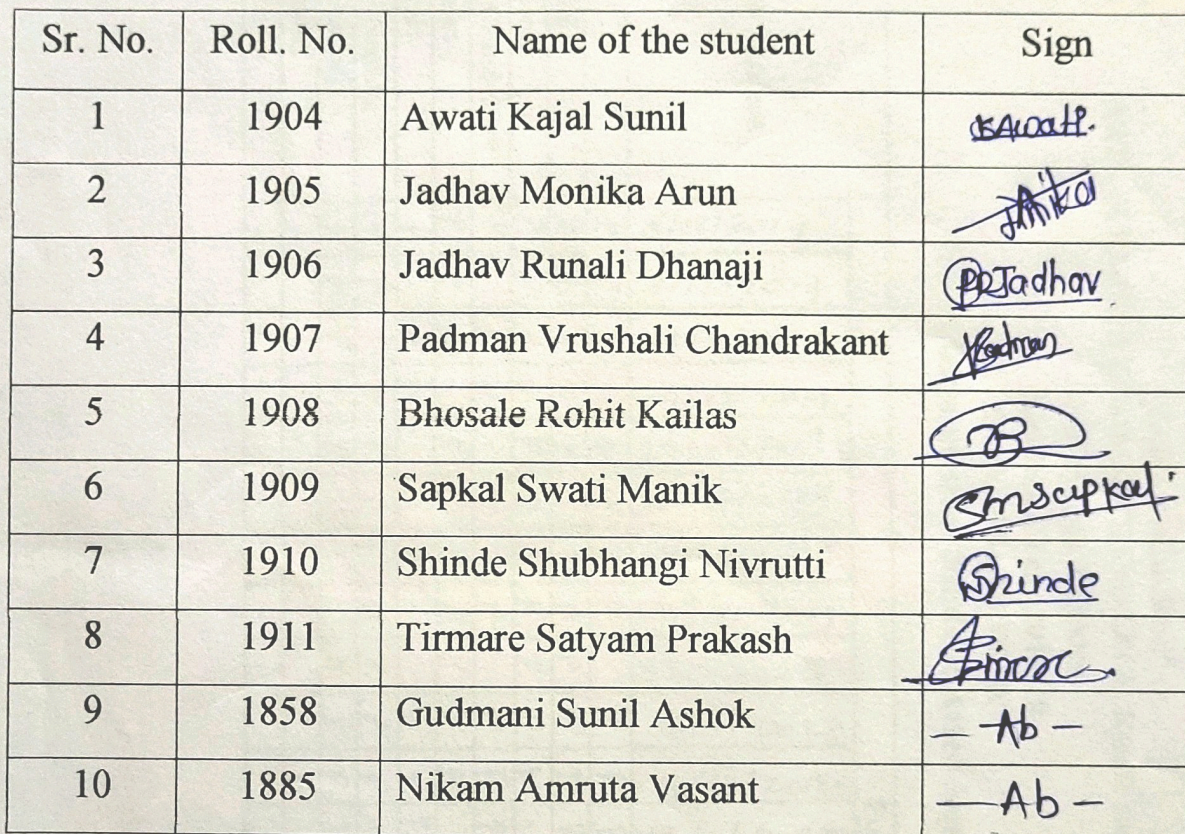 Sr. No. Roll. No. Name of the student Sign
1 1904 Awati Kajal Sunil KAwati.
2 1905 Jadhav Monika Arun
3 1906 Jadhav Runali Dhanaji Jadhav
4 1907 Padman Vrushali Chandrakant Padman
5 1908 Bhosale Rohit Kailas
6 1909 Sapkal Swati Manik Smsapkal
7 1910 Shinde Shubhangi Nivrutti Shinde
8 1911 Tirmare Satyam Prakash
9 1858 Gudmani Sunil Ashok - Ab -
10 1885 Nikam Amruta Vasant - Ab -